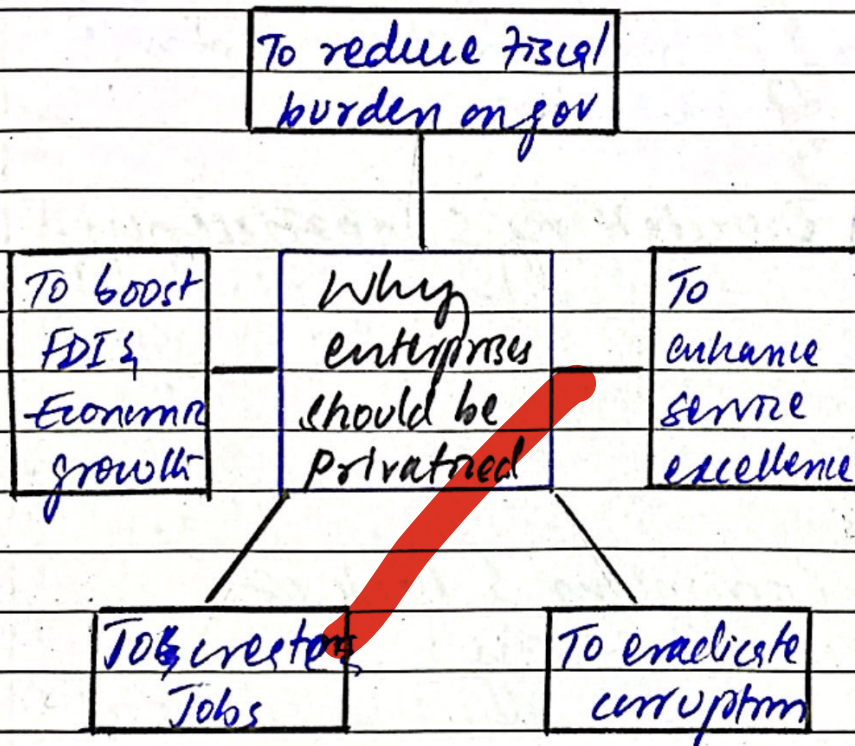 To reduce Fiscal
burden on gov
To boost
FDI &
Economic
growth
Why
enterprises
should be
privatized
To
enhance
service
excellence
create
Jobs
To eradicate
corruption